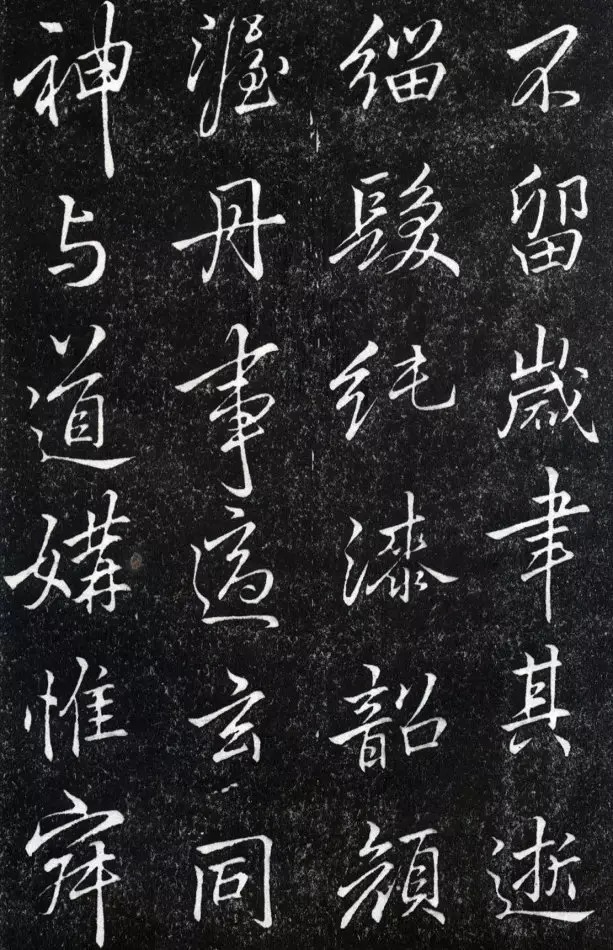 不留歲聿其逝
緇髮純漆韶顏
渥丹事適玄同
神与道媾惟寂